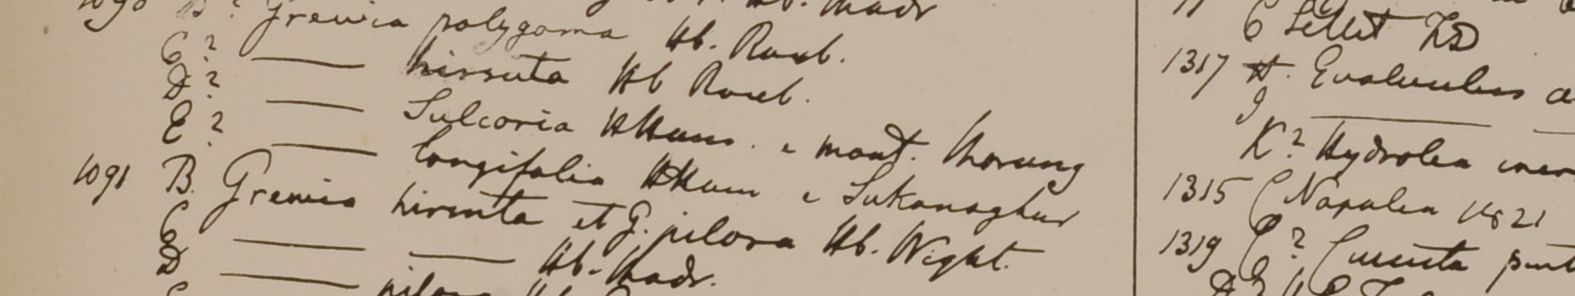 1090 B? Grewia polygama Hb. Roxb.
C? —— hirsuta Hb Roxb.
D? —— Sulcoria HHam. e mont.
E? —— longifolia HHam e Sukanaghur
1091 B. Grewia hirsuta et G. pilosa Hb. Wight.
C —— —— Hb. Madr.
D —— pilosa Hb.
C Sellet
1317 H. Evolvulus
I ——
K? Hydrolea
1315 C Napalia 1821
1319 C? Cuscuta